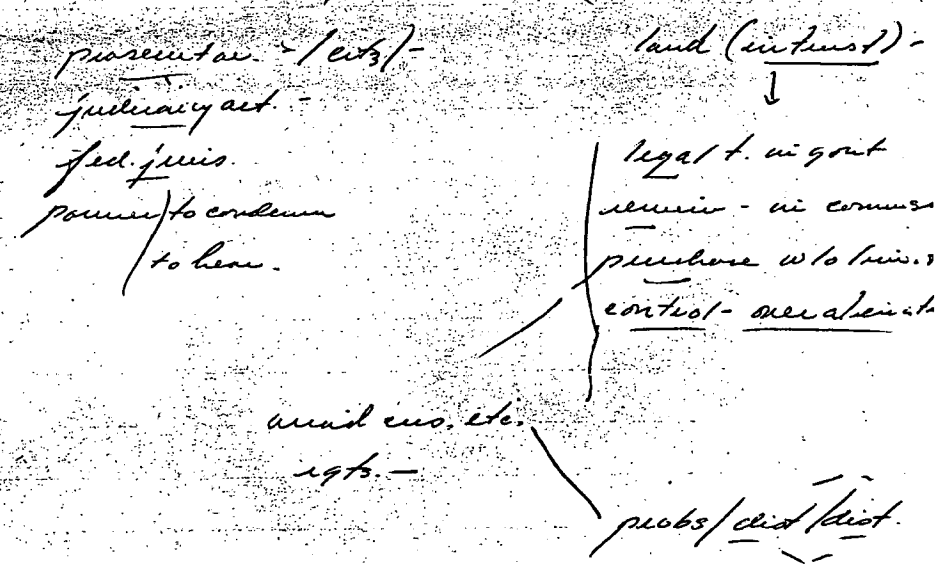 prosecutor. - / cits / -
judiciary act. -
fed. juris.
power / to condemn
/ to hear.
land (in trust) -
↓
legal t. in govt
remain - in
purchase w/o lim.
control - over alienat
avoid etc.
rgts. -
probs / dist / dist.